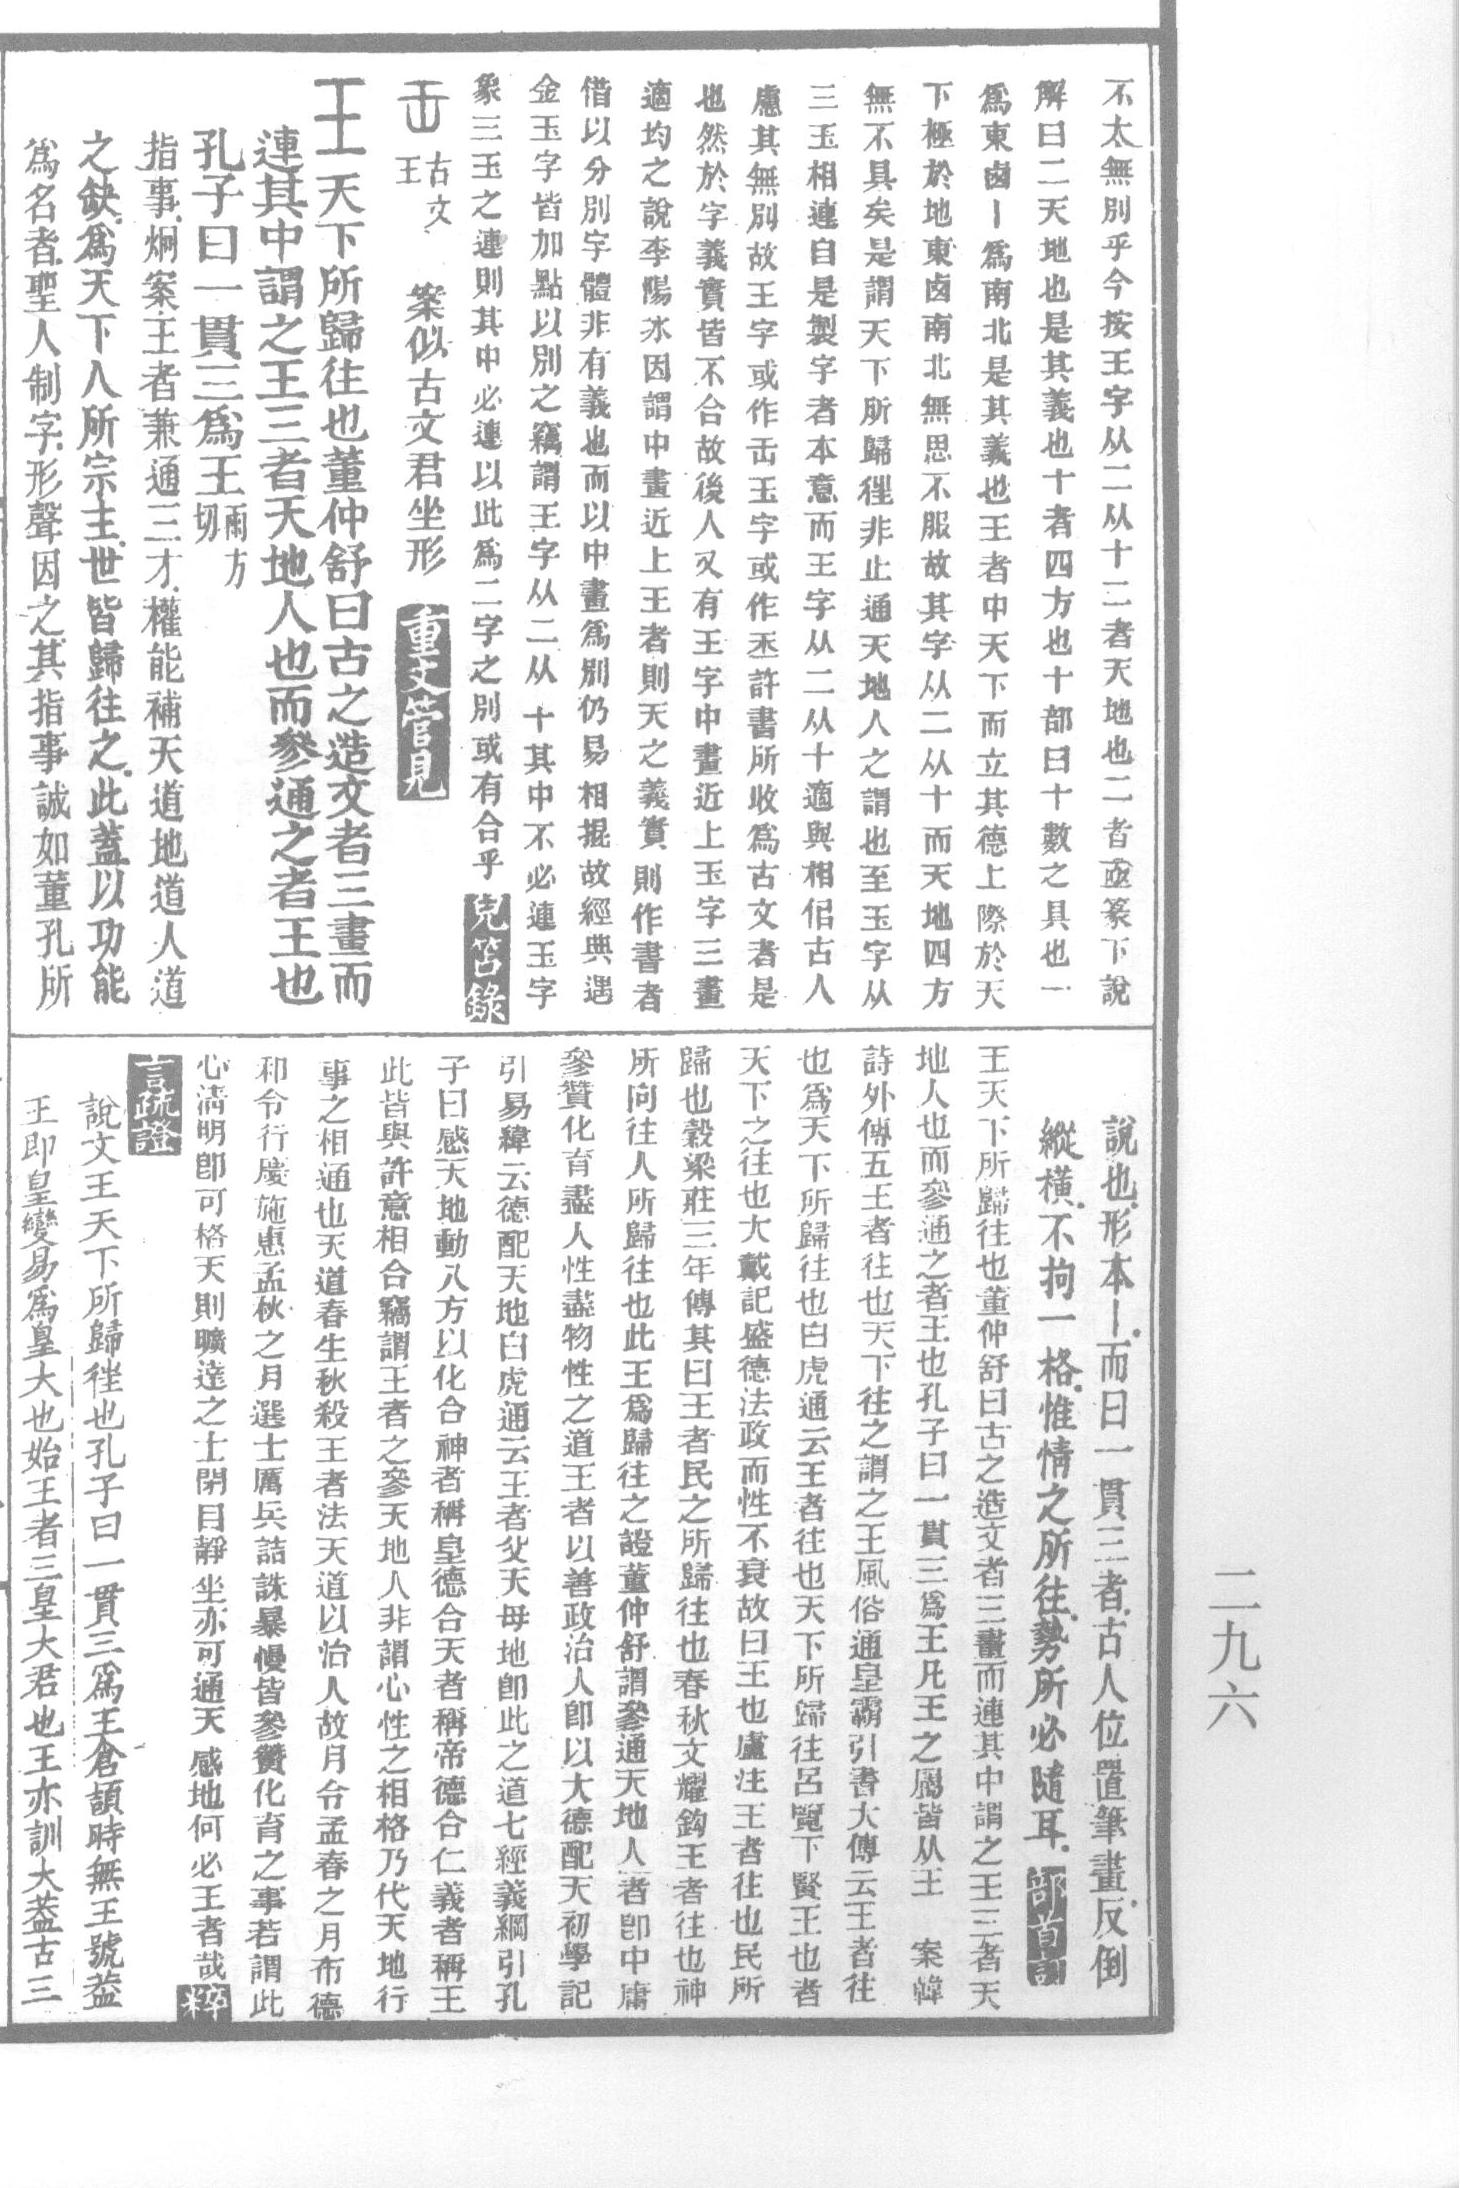 不太無別乎今按王字从二从十二者天地也二者亟篆下說
解曰二天地也是其義也十者四方也十部曰十數之具也一
爲東鹵丨爲南北是其義也王者中天下而立其德上際於天
下極於地東鹵南北無思不服故其字从二从十而天地四方
無不具矣是謂天下所歸徃非止通天地人之謂也至玉字从
三玉相連自是製字者本意而王字从二从十適與相侣古人
慮其無別故王字或作𠙻玉字或作𤣪許書所收爲古文者是
也然於字義實皆不合故後人又有王字中畫近上玉字三畫
適均之說李陽冰因謂中畫近上王者則天之義實則作書者
借以分別字體非有義也而以中畫爲別仍易相掍故經典遇
金玉字皆加點以別之竊謂王字从二从十其中不必連玉字
象三玉之連則其中必連以此爲二字之別或有合乎 兒笘錄
𠙻 古文王 案似古文君坐形 重文管見
王 天下所歸往也董仲舒曰古之造文者三畫而
連其中謂之王三者天地人也而參通之者王也
孔子曰一貫三爲王 雨方切
指事炯案王者兼通三才權能補天道地道人道
之缺爲天下人所宗主世皆歸往之此蓋以功能
爲名者聖人制字形聲因之其指事誠如董孔所
說也形本丨而曰一貫三者古人位置筆畫反倒
縱橫不拘一格惟情之所往勢所必隨耳 部首訓
王天下所歸往也董仲舒曰古之造文者三畫而連其中謂之王三者天
地人也而參通之者王也孔子曰一貫三爲王凡王之屬皆从王 案韓
詩外傳五王者往也天下往之謂之王風俗通皇霸引書大傳云王者往
也爲天下所歸往也白虎通云王者往也天下所歸往呂覽下賢王也者
天下之往也大戴記盛德法政而性不衰故曰王也盧注王者往也民所
歸也穀梁莊三年傳其曰王者民之所歸往也春秋文耀鈎王者往也神
所向往人所歸往也此王爲歸往之證董仲舒謂參通天地人者卽中庸
參贊化育盡人性盡物性之道王者以善政治人卽以大德配天初學記
引易緯云德配天地白虎通云王者父天母地卽此之道七經義綱引孔
子曰感天地動八方以化合神者稱皇德合天者稱帝德合仁義者稱王
此皆與許意相合竊謂王者之參天地人非謂心性之相格乃代天地行
事之相通也天道春生秋殺王者法天道以治人故月令孟春之月布德
和令行慶施惠孟秋之月選士厲兵詰誅暴慢皆參贊化育之事若謂此
心淸明卽可格天則曠達之士閉目靜坐亦可通天感地何必王者哉 粹
言疏證
說文王天下所歸徃也孔子曰一貫三爲王倉頡時無王號蓋
王即皇變易爲皇大也始王者三皇大君也王亦訓大蓋古三
二九六